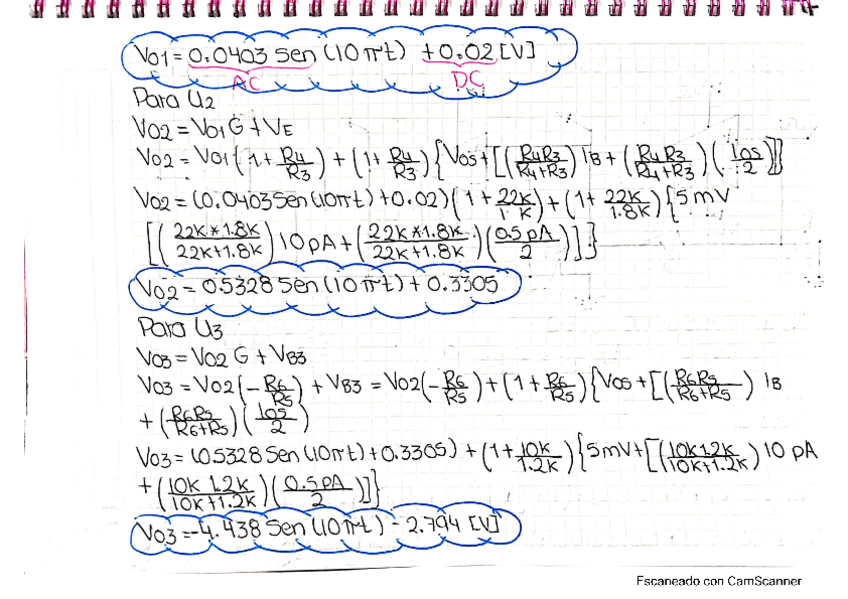 Vo1 = 0.0403 Sen (10πt) + 0.02 [V]
AC DC
Para U2
Vo2 = Vo1 G + VE
Vo2 = Vo1 (1 + R4/R3) + (1 + R4/R3) {Vos + [(R4R3/R4+R3) IB + (R4R3/R4+R3) (Ios/2)]}
Vo2 = (0.0403 Sen (10πt) + 0.02) (1 + 22K/ K) + (1 + 22K/1.8K) {5mV
[(22K*1.8K/22K+1.8K) 10pA + (22K*1.8K/22K+1.8K) (0.5pA/2)]}
Vo2 = 0.5328 Sen (10πt) + 0.3305
Para U3
Vo3 = Vo2 G + VB3
Vo3 = Vo2 (-R6/R5) + VB3 = Vo2 (-R6/R5) + (1 + R6/R5) {Vos + [(R6R5/R6+R5) IB
+ (R6R5/R6+R5) (Ios/2)
Vo3 = (0.5328 Sen (10πt) + 0.3305) + (1 + 10K/1.2K) {5mV + [(10K 1.2K/10K+1.2K) 10 pA
+ (10K 1.2K/10K+1.2K) (0.5pA/2)]}
Vo3 = -4.438 Sen (10πt) - 2.794 [V]
Escaneado con CamScanner